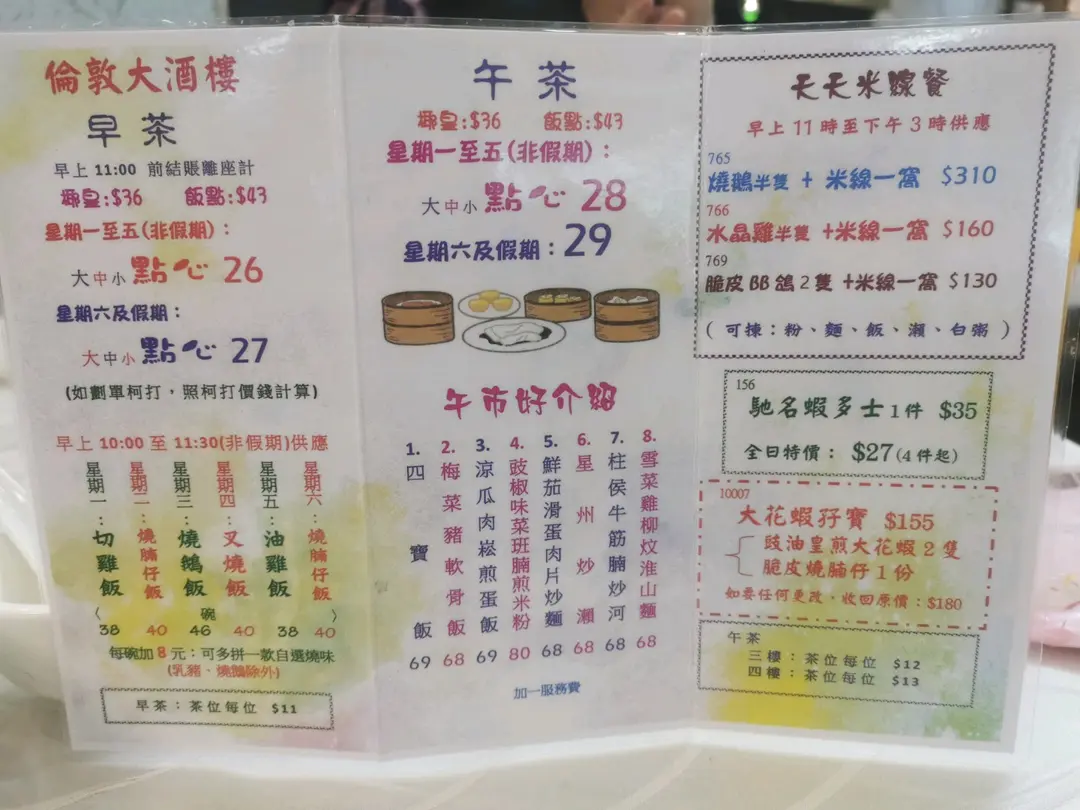 倫敦大酒樓
早茶
早上 11:00 前結賬離座計
爺皇:$36 飯點:$43
星期一至五(非假期)：
大中小 點心 26
星期六及假期：
大中小 點心 27
(如劃單柯打，照柯打價錢計算)
早上 10:00 至 11:30(非假期)供應
星期一：切雞飯 38
星期二：燒腩仔飯 40
星期三：燒鵝飯 46
星期四：叉燒飯 40
星期五：油雞飯 38
星期六：燒腩仔飯 40
〈 碗 〉
每碗加 8 元：可多拼一款自選燒味
(乳豬、燒鵝除外)
早茶：茶位每位 $11
午茶
:$36 飯點:$43
星期一至五(非假期)：
大中小 點心 28
星期六及假期：29
午市好介紹
1. 四寶飯 69
2. 梅菜豬軟骨飯 68
3. 涼瓜肉崧煎蛋飯 69
4. 豉椒味菜班腩煎米粉 80
5. 鮮茄滑蛋肉片炒麵 68
6. 星州炒瀨 68
7. 柱侯牛筋腩炒河 68
8. 雪菜雞柳炆淮山麵 68
加一服務費
天天米線餐
早上 11 時至下午 3 時供應
765
燒鵝半隻 + 米線一窩 $310
766
水晶雞半隻 +米線一窩 $160
769
脆皮 BB 鴿 2 隻 +米線一窩 $130
( 可揀：粉、麵、飯、瀨、白粥 )
156
馳名蝦多士 1 件 $35
全日特價： $27 (4 件起)
10007
大花蝦孖寶 $155
豉油皇煎大花蝦 2 隻
脆皮燒腩仔 1 份
如要任何更改，收回原價：$180
午茶
三樓：茶位每位 $12
四樓：茶位每位 $13